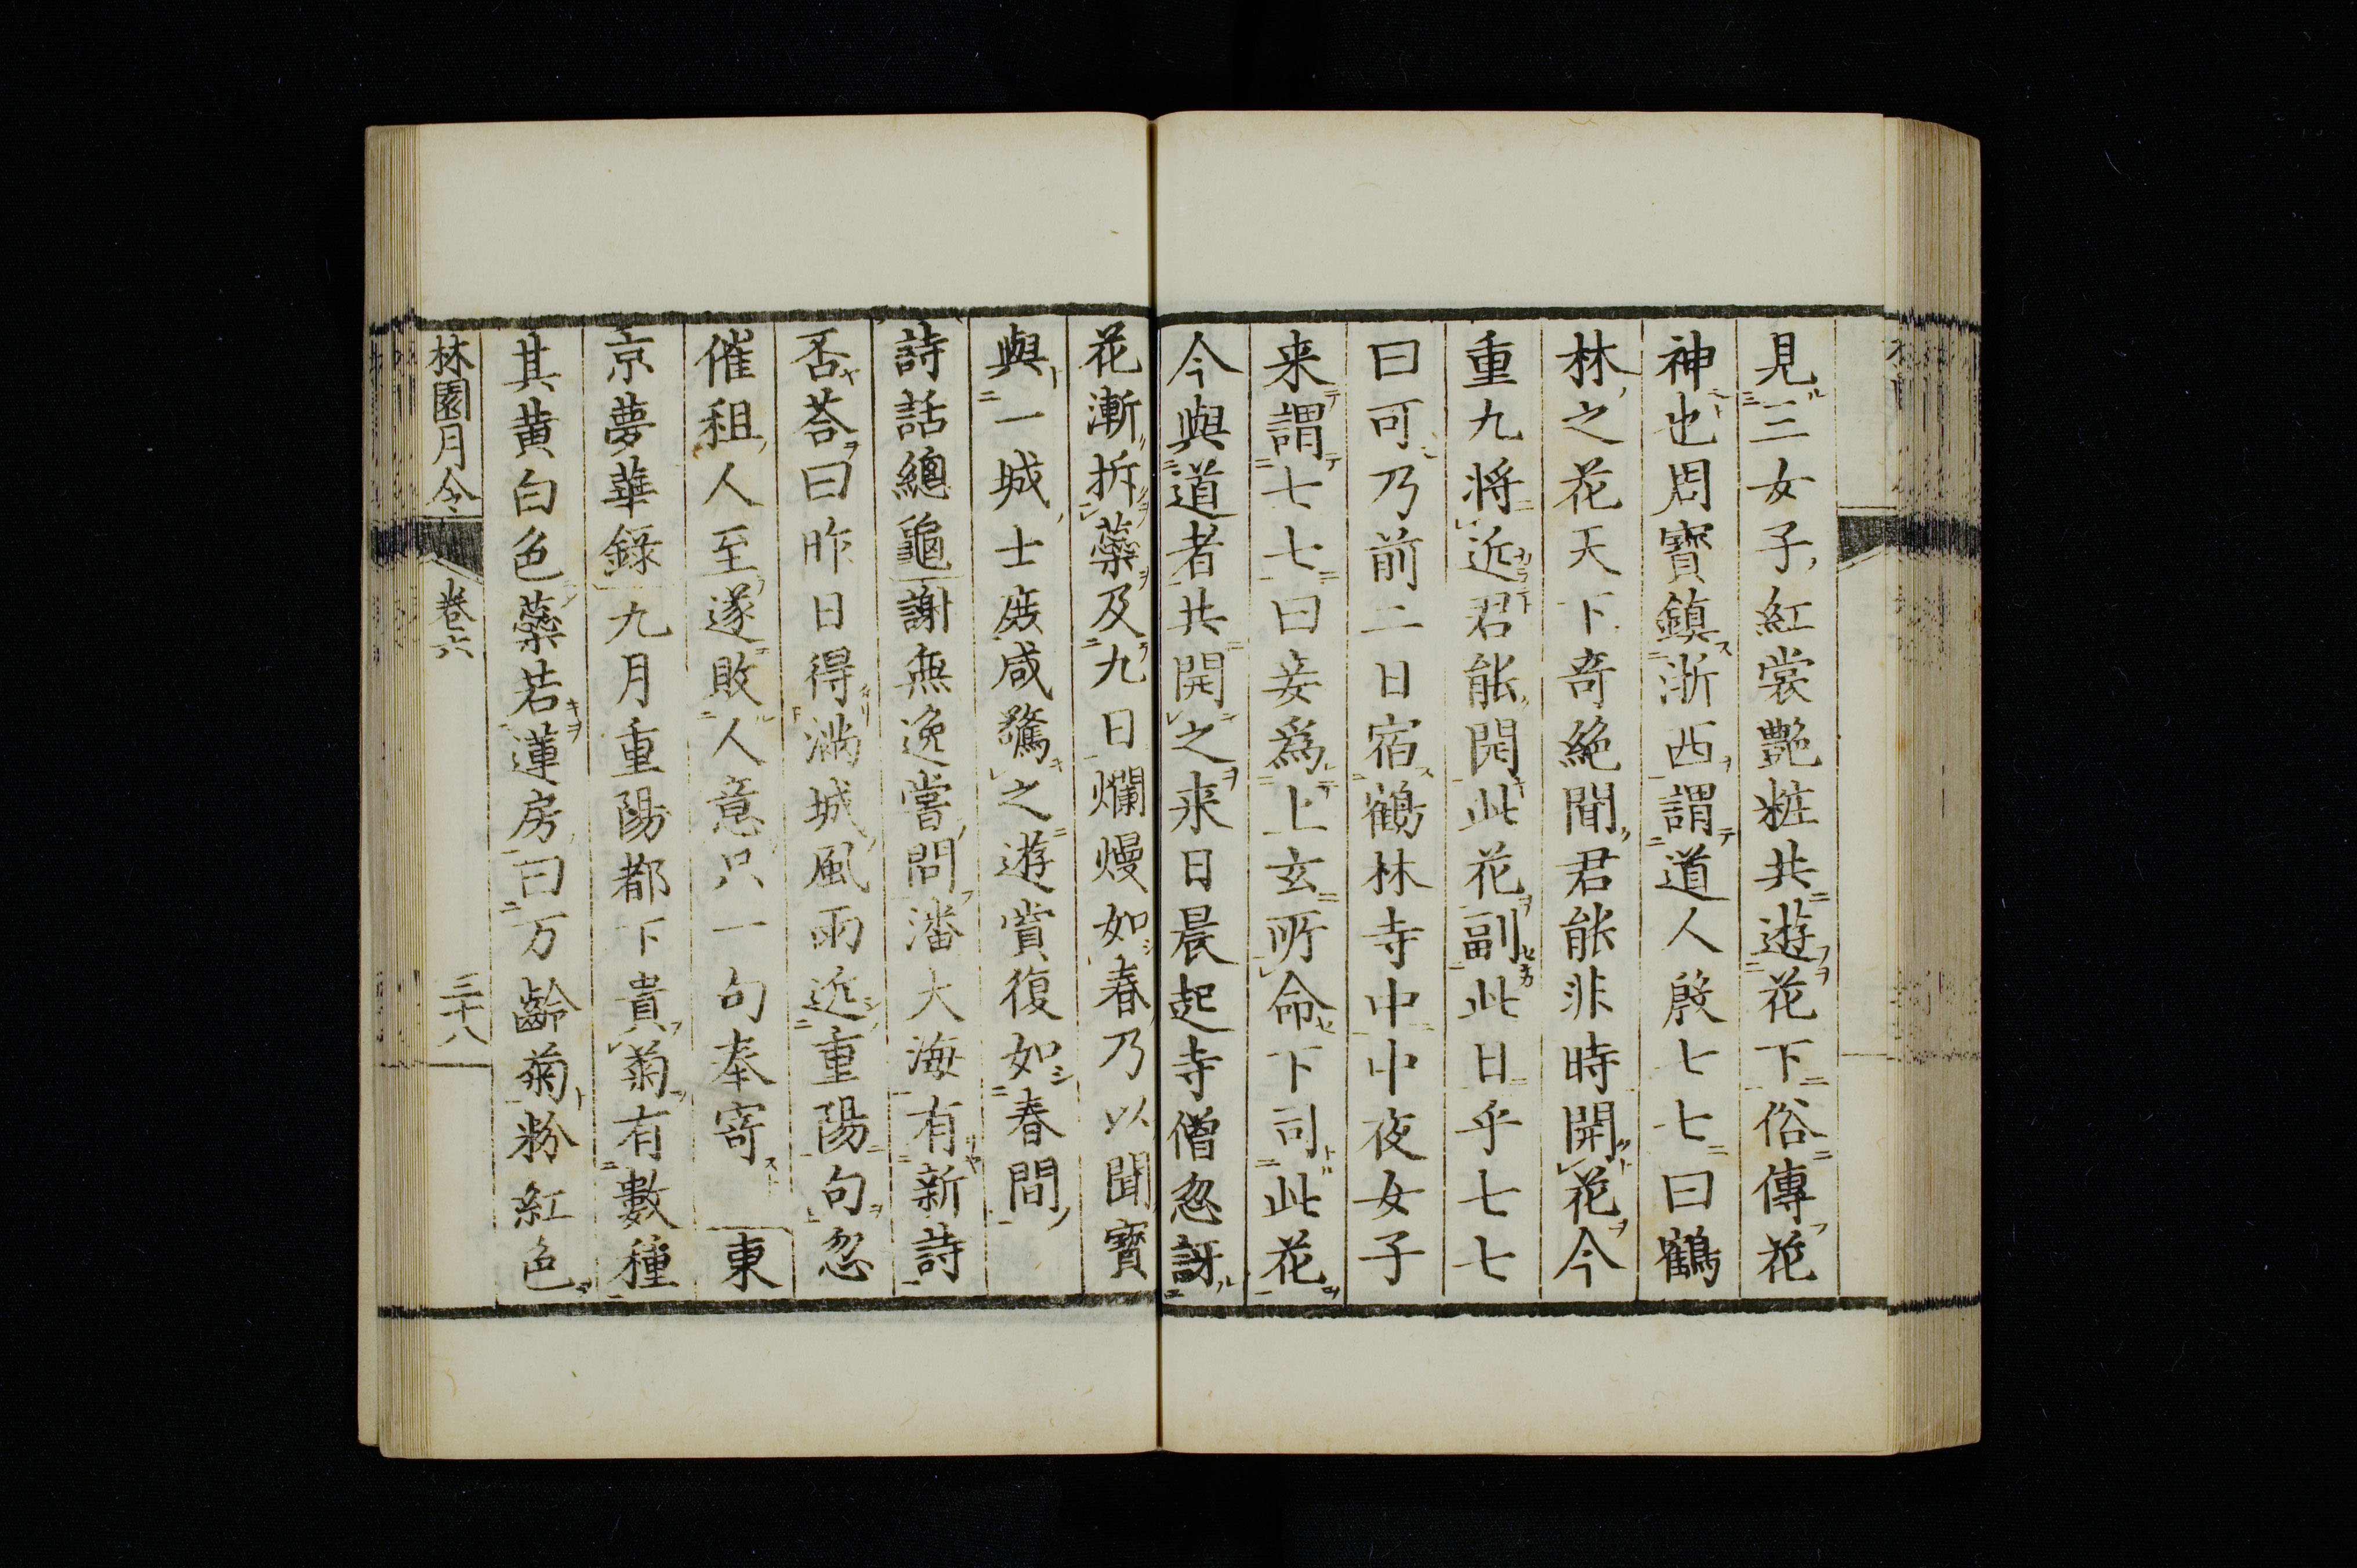 見三女子紅裳艶粧共遊花下俗傳花
神也周寶鎮浙西謂道人殷七七曰鶴
林之花天下竒絶聞君能非時開花今
重九将近君能開此花副此日乎七七
曰可乃前二日宿鶴林寺中中夜女子
来謂七七曰妾爲上玄所命下司此花
今與道者共開之来日晨起寺僧忽訝
花漸拆蘂及九日爛熳如春乃以聞寶
與一城士庶咸驚之遊賞復如春間
詩話總龜謝無逸嘗問潘大海有新詩
否荅曰昨日得滿城風雨近重陽句忽
催租人至遂敗人意只一句奉寄 東
京夢華錄九月重陽都下貴菊有數種
其黄白色蘂若蓮房曰万齡菊粉紅色
林園月令 卷六 三十八